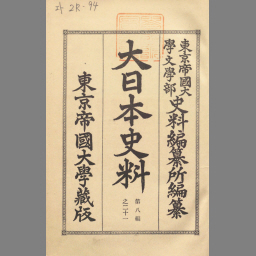 2R-94
東京帝國大學文學部
史料編纂所編纂
大日本史料
第八編
之二十一
東京帝國大學藏版